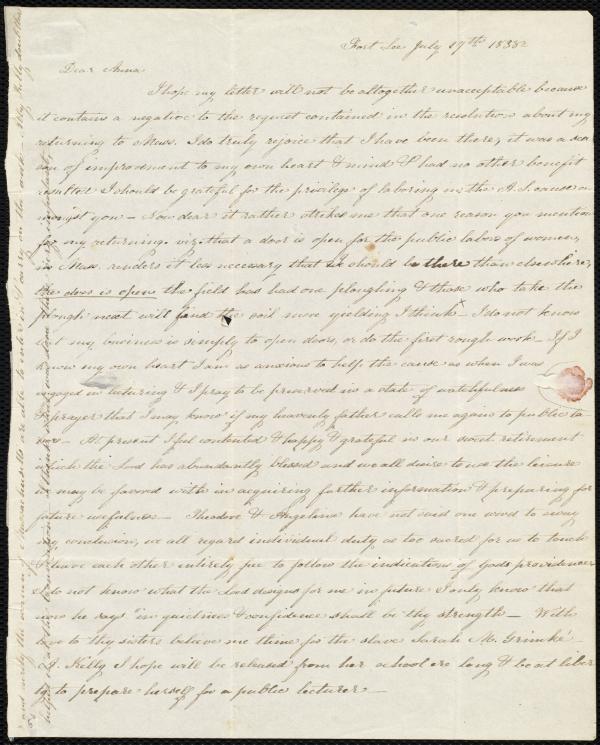 Fort Lee July 19th 1838
Dear Anna
I hope my letter will not be altogether unacceptable because
it contains a negative to the request contained in the resolution about my
returning to Mass. I do truly rejoice that I have been there, it was a sea
son of improvement to my own heart & mind & had no other benefit
resulted I should be grateful for the privilege of laboring in the A.S. cause a
mongst you — Now dear it rather strikes me that one reason you mention
for my returning viz. that a door is open for the public labors of women,
in Mass. renders it less necessary that I should be there than elsewhere,
the door is open the field has had one ploughing & those who take the
plough next will find the soil more yielding I think — I do not know
but my business is simply to open doors, or do the first rough work — If I
know my own heart I am as anxious to help the cause as when I was
engaged in lecturing & I pray to be preserved in a state of watchfulness
& prayer that I may know if my heavenly father calls me again to public la
bors — At present I feel contented & happy & grateful in our sweet retirement
which the Lord has abundantly blessed and we all desire to use the leisure
we may be favored with in acquiring further information & preparing for
future usefulness — Theodore & Angelina have not said one word to sway
my conclusion, we all regard individual duty as too sacred for us to touch
& leave each other entirely free to follow the indications of Gods providence
I do not know what the Lord designs for me in future I only know that
now he says "in quietness & confidence shall be thy strength — With
love to thy sisters believe me thine for the slave Sarah M. Grimké —
A. Kelly I hope will be released from her school ere long & be at liber
ty to prepare herself for a public lecturer —